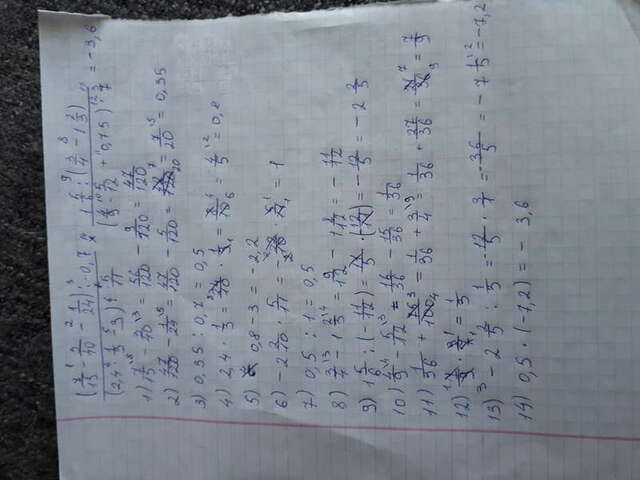 (7/15 - 3/40 - 1/24) : 0,7 / (2,4 · 1/3 - 3) : 5/11 × 1 5/6 : (3/4 - 1 2/3) / (4/9 - 5/12 + 0,75) · 3/7 = -3,6
1) 7/15 - 3/40 = 56/120 - 9/120 = 47/120
2) 47/120 - 1/24 = 47/120 - 5/120 = 42/120 = 7/20 = 0,35
3) 0,35 : 0,7 = 0,5
4) 2,4 · 1/3 = 24/10 · 1/3 = 8/10 = 4/5 = 0,8
5) 0,8 - 3 = -2,2
6) -2 2/10 · 5/11 = -22/10 · 5/11 = 1
7) 0,5 : 1 = 0,5
8) 3/4 - 1 2/3 = 9/12 - 1 8/12 = - 11/12
9) 1 5/6 : (-11/12) = 11/5 · (12/11) = -12/5 = -2 2/5
10) 4/9 - 5/12 = 16/36 - 15/36 = 1/36
11) 1/36 + 75/100 = 1/36 + 3/4 = 1/36 + 27/36 = 28/36 = 7/9
12) 7/9 · 3/7 = 1/3
13) -2 2/5 : 1/3 = -12/5 · 3/1 = -36/5 = -7 1/5 = -7,2
14) 0,5 · (-7,2) = - 3,6